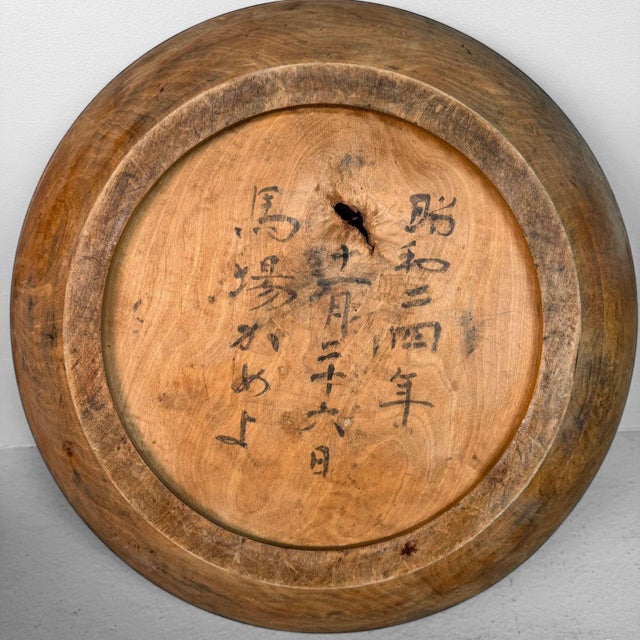 昭和二四年
十一月二十六日
馬場かめよ